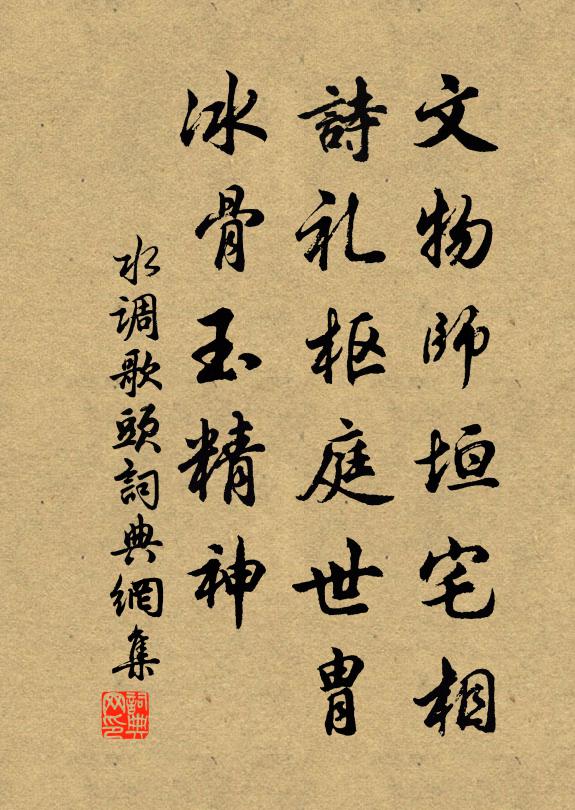 文物師垣宅相
詩礼枢庭世胄
冰骨玉精神
水调歌頭詞典網集
詞典
网印